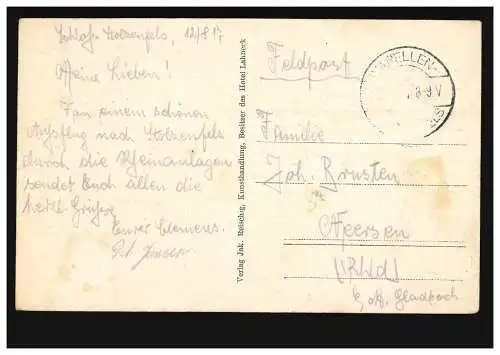 Schloß Stolzenfels, 12/8 17
Meine Lieben!
Von einem schönen
Ausflug nach Stolzenfels
durch die Rheinanlagen
sendet Euch allen die
herzl. Grüße
Eurer Clemens.
Jansen
Verlag Jak. Reisdig, Kunsthandlung, Besitzer des Hotel Lahneck
Feldpost
CAPELLEN-
8-9 V
Familie
Joh. Brüsten
Neersen
(Rhld)
b. M. Gladbach